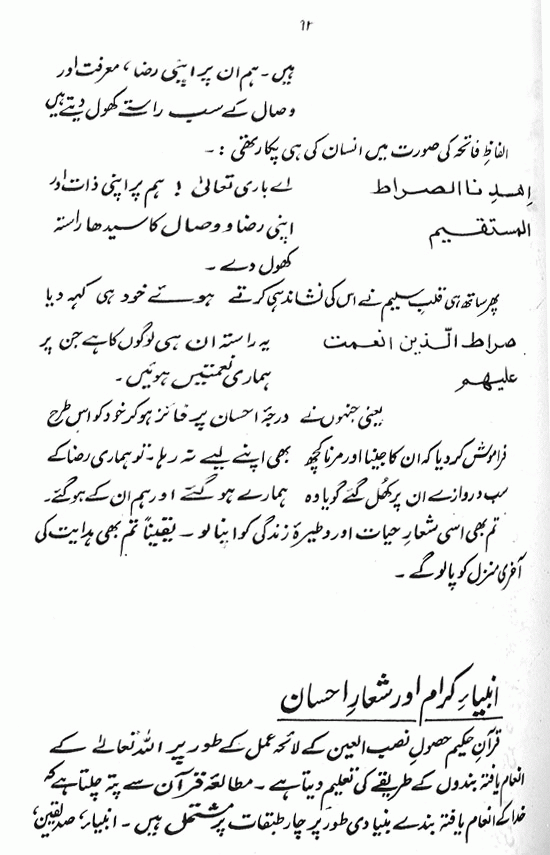 ۹۲
ہیں۔ ہم ان پر اپنی رضا، معرفت اور
وصال کے سب راستے کھول دیتے ہیں
الفاظِ فاتحہ کی صورت میں انسان کی ہی پکار تھی :۔
اِھدِنا الصراط اے باری تعالیٰ ! ہم پر اپنی ذات اور
المستقیم اپنی رضا و وصال کا سیدھا راستہ
کھول دے ۔
پھر ساتھ ہی قلبِ سلیم نے اس کی نشاندہی کرتے ہوئے خود ہی کہہ دیا
صراط الّذین انعمت یہ راستہ ان ہی لوگوں کا ہے جن پر
علیہم ہماری نعمتیں ہوئیں ۔
یعنی جنہوں نے درجۂ احسان پر فائز ہو کر خود کو اس طرح
فراموش کر دیا کہ ان کا جینا اور مرنا کچھ بھی اپنے لیے نہ رہا ۔ تو ہماری رضا کے
سب دروازے ان پر کھُل گئے گویا وہ ہمارے ہو گئے اور ہم ان کے ہو گئے ۔
تم بھی اسی شعارِ حیات اور وطیرۂ زندگی کو اپنا لو ۔ یقیناً تم بھی ہدایت کی
آخری منزل کو پا لو گے ۔
انبیاءِ کرام اور شعارِ احسان
قرآنِ حکیم حصولِ نصب العین کے لائحہ عمل کے طور پر اللہ تعالےٰ کے
انعام یافتہ بندوں کے طریقے کی تعلیم دیتا ہے ۔ مطالعہ قرآن سے پتہ چلتا ہے کہ
خدا کے انعام یافتہ بندے بنیادی طور پر چار طبقات پر مشتمل ہیں ۔ انبیاء، صدیقین،